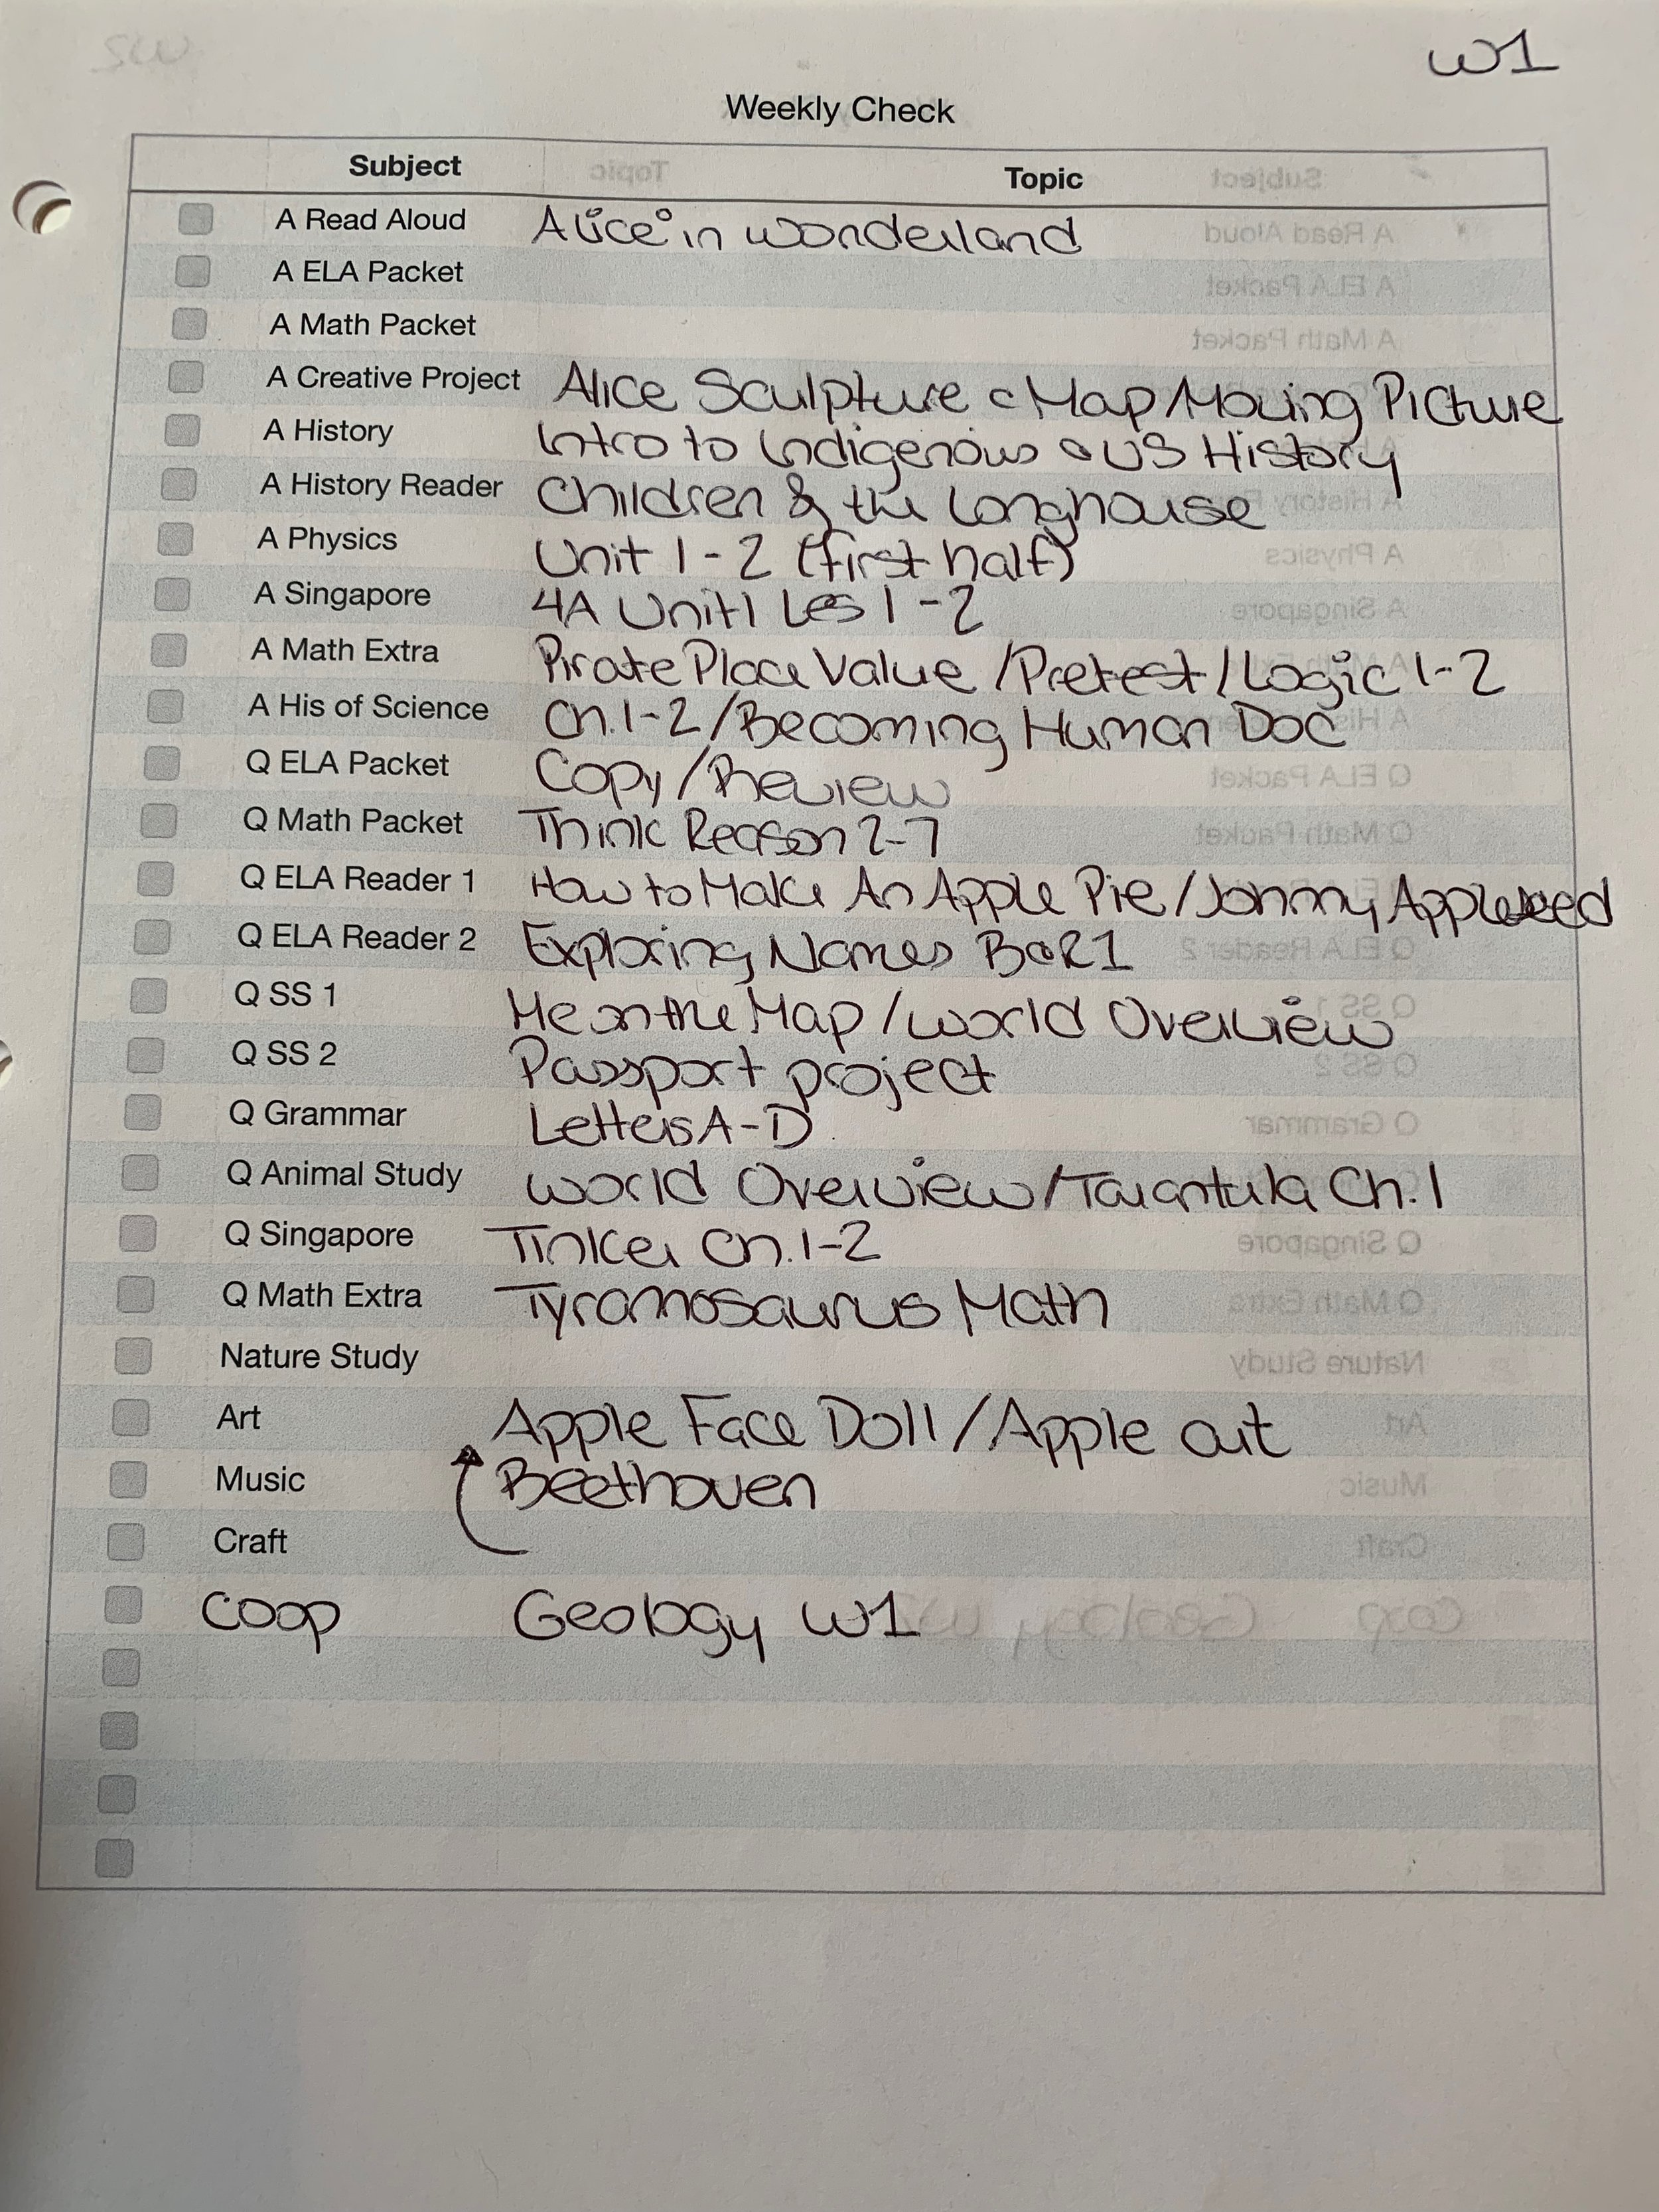 W1
Weekly Check
Subject Topic
A Read Aloud Alice in Wonderland
A ELA Packet
A Math Packet
A Creative Project Alice Sculpture Map/Moving Picture
A History Intro to Indigenous US History
A History Reader Children & the Longhouse
A Physics Unit 1-2 (first half)
A Singapore 4A Unit 1 Les 1-2
A Math Extra Pirate Place Value /Pretest/Logic 1-2
A His of Science Ch. 1-2/Becoming Human Doc
Q ELA Packet Copy/Review
Q Math Packet Think Reason 2-7
Q ELA Reader 1 How to Make An Apple Pie/Johnny Appleseed
Q ELA Reader 2 Exploring Names
Q SS 1 Me on the Map/World Overview
Q SS 2 Passport project
Q Grammar Letters A-D
Q Animal Study World Overview/Tarantula Ch. 1
Q Singapore Tinker Ch. 1-2
Q Math Extra Tyrannosaurus Math
Nature Study
Art Apple Face Doll/Apple art
Music Beethoven
Craft
Coop Geology W1